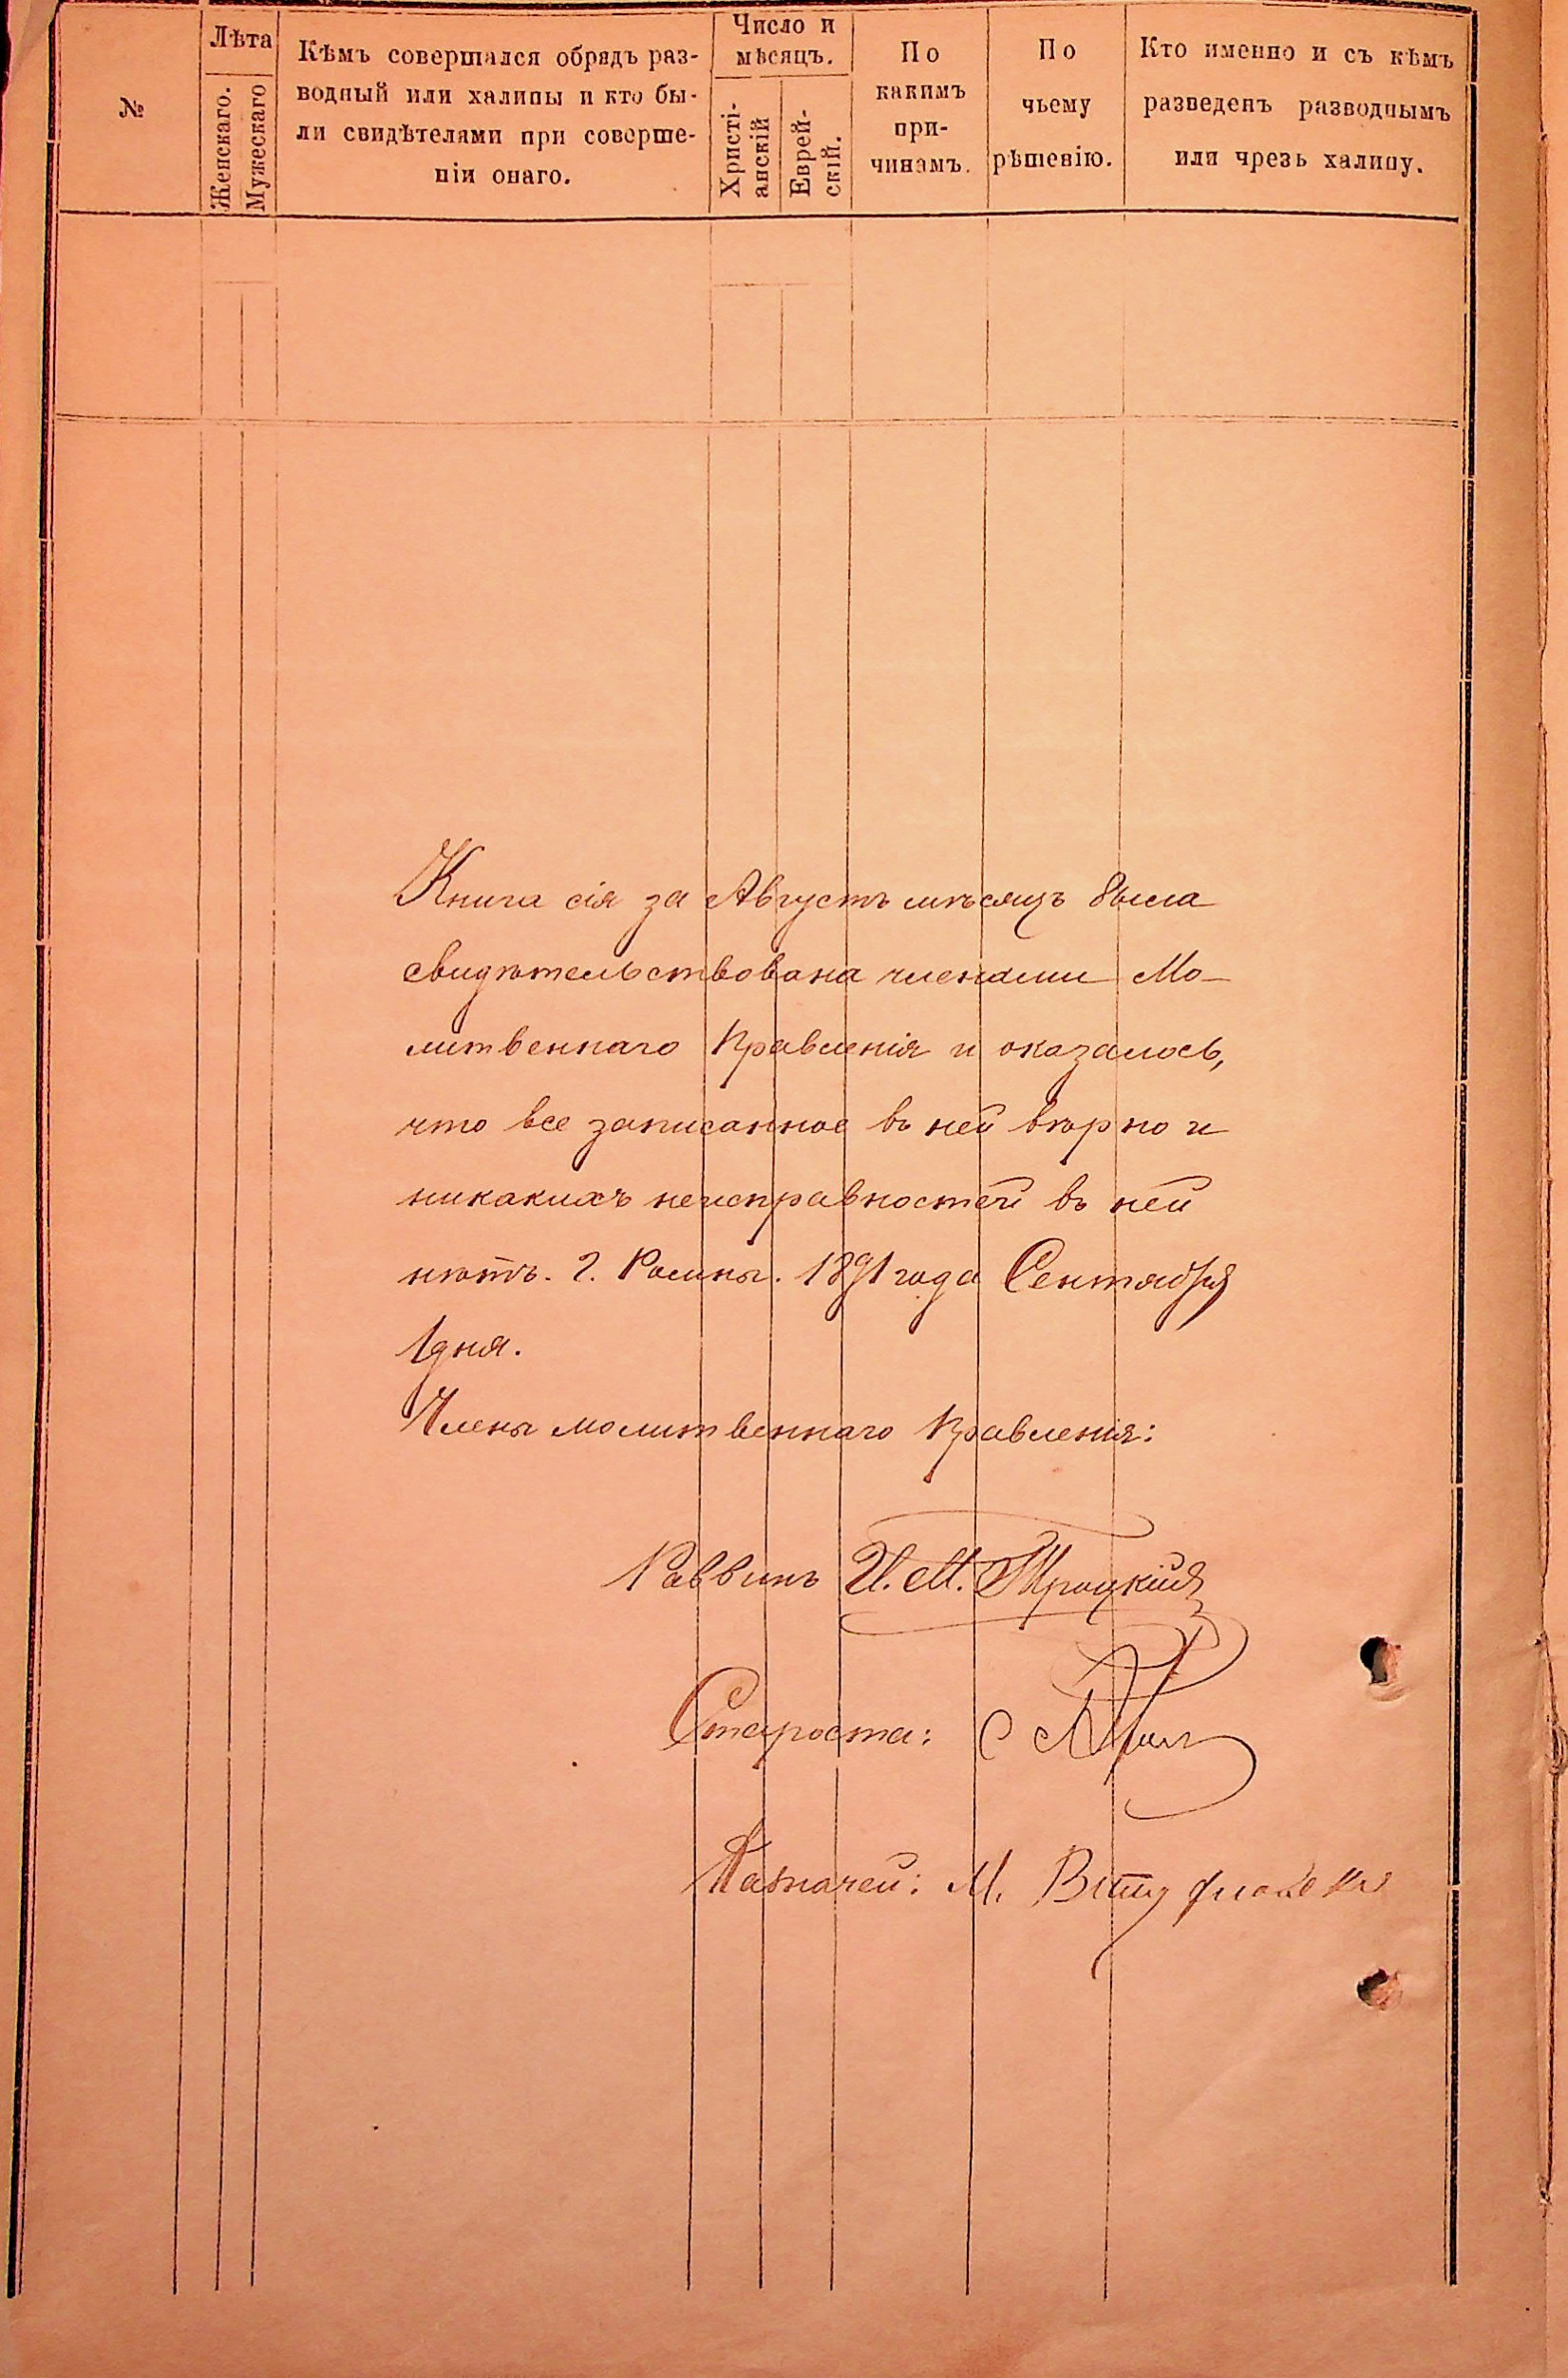 №
Лѣта
Женскаго.
Мужескаго
Кѣмъ совершался обрядъ раз-
водный или халицы и кто бы-
ли свидѣтелями при соверше-
ніи онаго.
Число и
мѣсяцъ.
Христі-
анскій
Еврей-
скій.
По
какимъ
при-
чинамъ.
По
чьему
рѣшенію.
Кто именно и съ кѣмъ
разведенъ разводнымъ
или чрезъ халицу.
Книга сія за Августъ мѣсяцъ была
свидѣтельствована членами Мо-
литвеннаго Правленія и оказалось,
что все записанное въ ней вѣрно и
никакихъ неисправностей въ ней
нѣтъ. г. Ромны. 1891 года Сентября
1 дня.
Члены молитвеннаго Правленія:
Раввинъ И. М. Троцкій
Староста: С
Казначей: М.